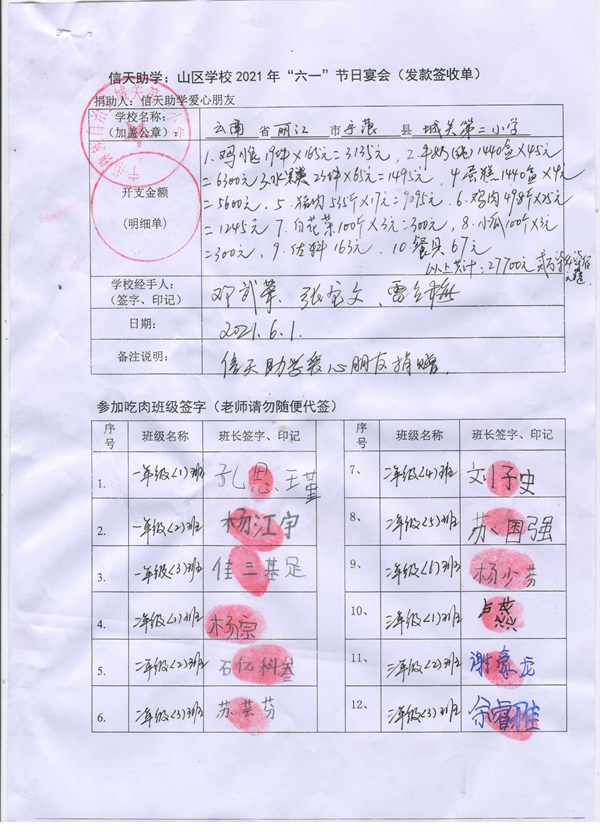 信天助学：山区学校2021年“六一”节日宴会（发款签收单）
捐助人：信天助学爱心朋友
学校名称：
（加盖公章）：
云南 省 丽江 市 宁蒗 县 城关第二小学
开支金额
（明细单）
1、鸡腿19件×165元=3135元，2、牛奶(纯)1440盒×45元
=6300元 3、水果类23件×65元=1495元，4、蛋糕1440盒×4元
=5600元，5、猪肉535斤×17元=9095元，6、鸡肉498斤×25元
=1245元 7、白花菜100斤×3元=300元，8、小瓜100斤×3元
=300元，9、佐料163元，10、餐具67元
以上共计：27700元
学校经手人：
（签字、印记）
邓武荣、张宝文、雷
日期：
2021.6.1.
备注说明：
信天助学爱心朋友捐赠.
参加吃肉班级签字（老师请勿随便代签）
序号 班级名称 班长签字、印记 序号 班级名称 班长签字、印记
1. 一年级(1)班 孔思、王堇
7、 二年级(4)班 刘子史
2. 一年级(2)班 杨江宇
8、 二年级(5)班 苏国强
3. 一年级(3)班 佳三基足
9、 二年级(6)班 杨少芬
4. 二年级(1)班 杨宗
10、 三年级(1)班 卢
5. 二年级(2)班 石亿科叁
11、 三年级(2)班 谢豪龙
6. 二年级(3)班 苏芸芬
12、 三年级(3)班 余睿雅